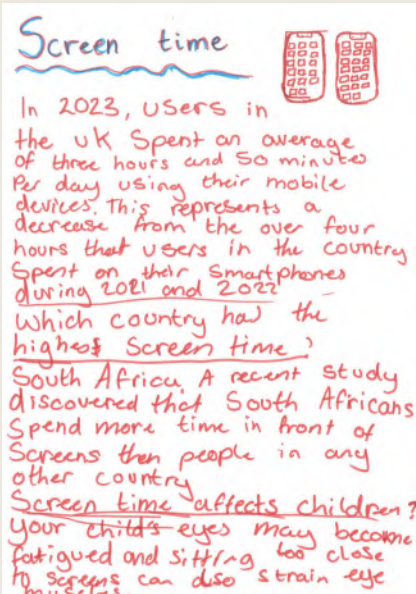 Screen time
In 2023, users in
the uk Spent an average
of three hours and 50 minutes
Per day using their mobile
devices. This represents a
decrease from the over four
hours that users in the country
Spent on their Smartphones
during 2021 and 2022
Which country had the
highest Screen time?
South Africa. A recent study
discovered that South Africans
Spend more time in front of
Screens then people in any
other country
Screen time affects children?
your child's eyes may become
fatigued and sitting too close
to screens can also strain eye
muscles